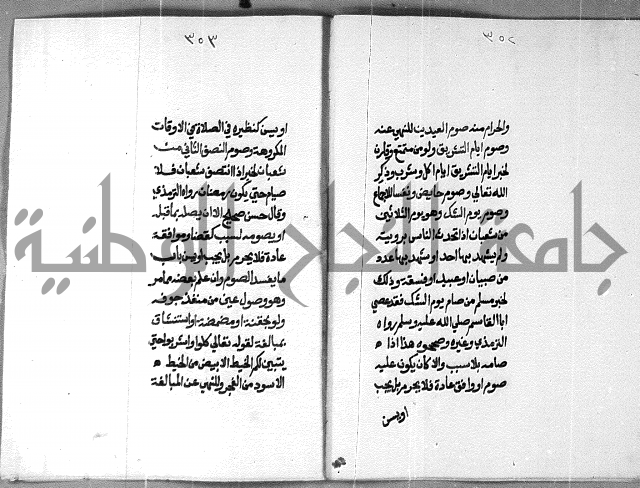 ٣٥٢
والحرام منه صوم العيدين للنهي عنه
وصوم ايام التشريق ولو من متمتع وقارن
لخبر ايام التشريق ايام اكل وشرب وذكر
الله تعالي وصوم حايض ونفسا للاجماع
وصوم يوم الشك وهو يوم الثلاثين
من شعبان اذا تحدث الناس برويته
ولم يشهد بها احد او شهد بها عدد
من صبيان او عبيد او فسقة وذلك
لخبر مسلم من صام يوم الشك فقد عصي
ابا القاسم صلي الله عليه وسلم رواه
الترمذي وغيره وصححوه هذا اذا
صامه بلا سبب والا كان يكون عليه
صوم او وافق عادة فلا يحرم بل يجب
او يسن
٣٥٣
او يسن كنظيره في الصلاة في الاوقات
المكروهة وصوم النصف الثاني من
شعبان لخبر اذا انتصف شعبان فلا
صيام حتي يكون رمضان رواه الترمذي
وقال حسن صحيح الا ان يصله بما قبله
او يصومه لسبب كقضا وموافقة
عادة فلا يحرم بل يجب او يسن باب
ما يفسد الصوم وان علم بعضه مامر
وهو وصول عين من منفذ جوفه
ولو بحقنة او مضمضة او استنشاق
بمبالغة لقوله تعالي كلوا واشربوا حتي
يتبين لكم الخيط الابيض من الخيط
الاسود من الفجر وللنهي عن المبالغة
جامعة النجاح الوطنية